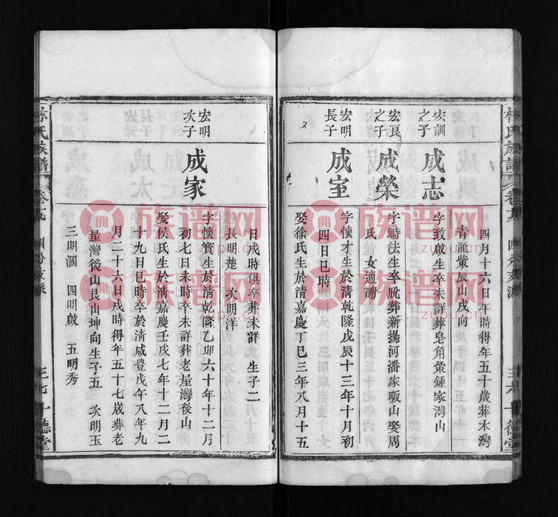 四月十六日午時得年五十歲葬木灣
青龍嘴辰山戌向
宏訓
之子
成志
字致啟生卒未詳葬皂角嘴鍾家灣山
宏良
之子
成榮
字時法生卒脫葬新揚河潘家畈山娶周
氏 女適謝
宏明
長子
成室
字懷才生於清乾隆戊辰十三年十月初
四日巳時
娶徐氏生於清嘉慶丁巳三年八月十五
日戌時俱卒葬未詳 生子二
長明楚 次明洋
宏明
次子
成家
字懷寶生於清乾隆乙卯六十年十二月
初七日未時卒未詳葬老屋灣後山
娶侯氏生於清嘉慶壬戌七年十二月二
十九日巳時卒於清咸豐戊午八年九
月二十六日戌時得年五十七歲葬老
屋灣後山艮山坤向生子五 次明玉
三明渭 四明啟 五明秀
林氏族譜 卷九 四分支派
德堂
族譜网